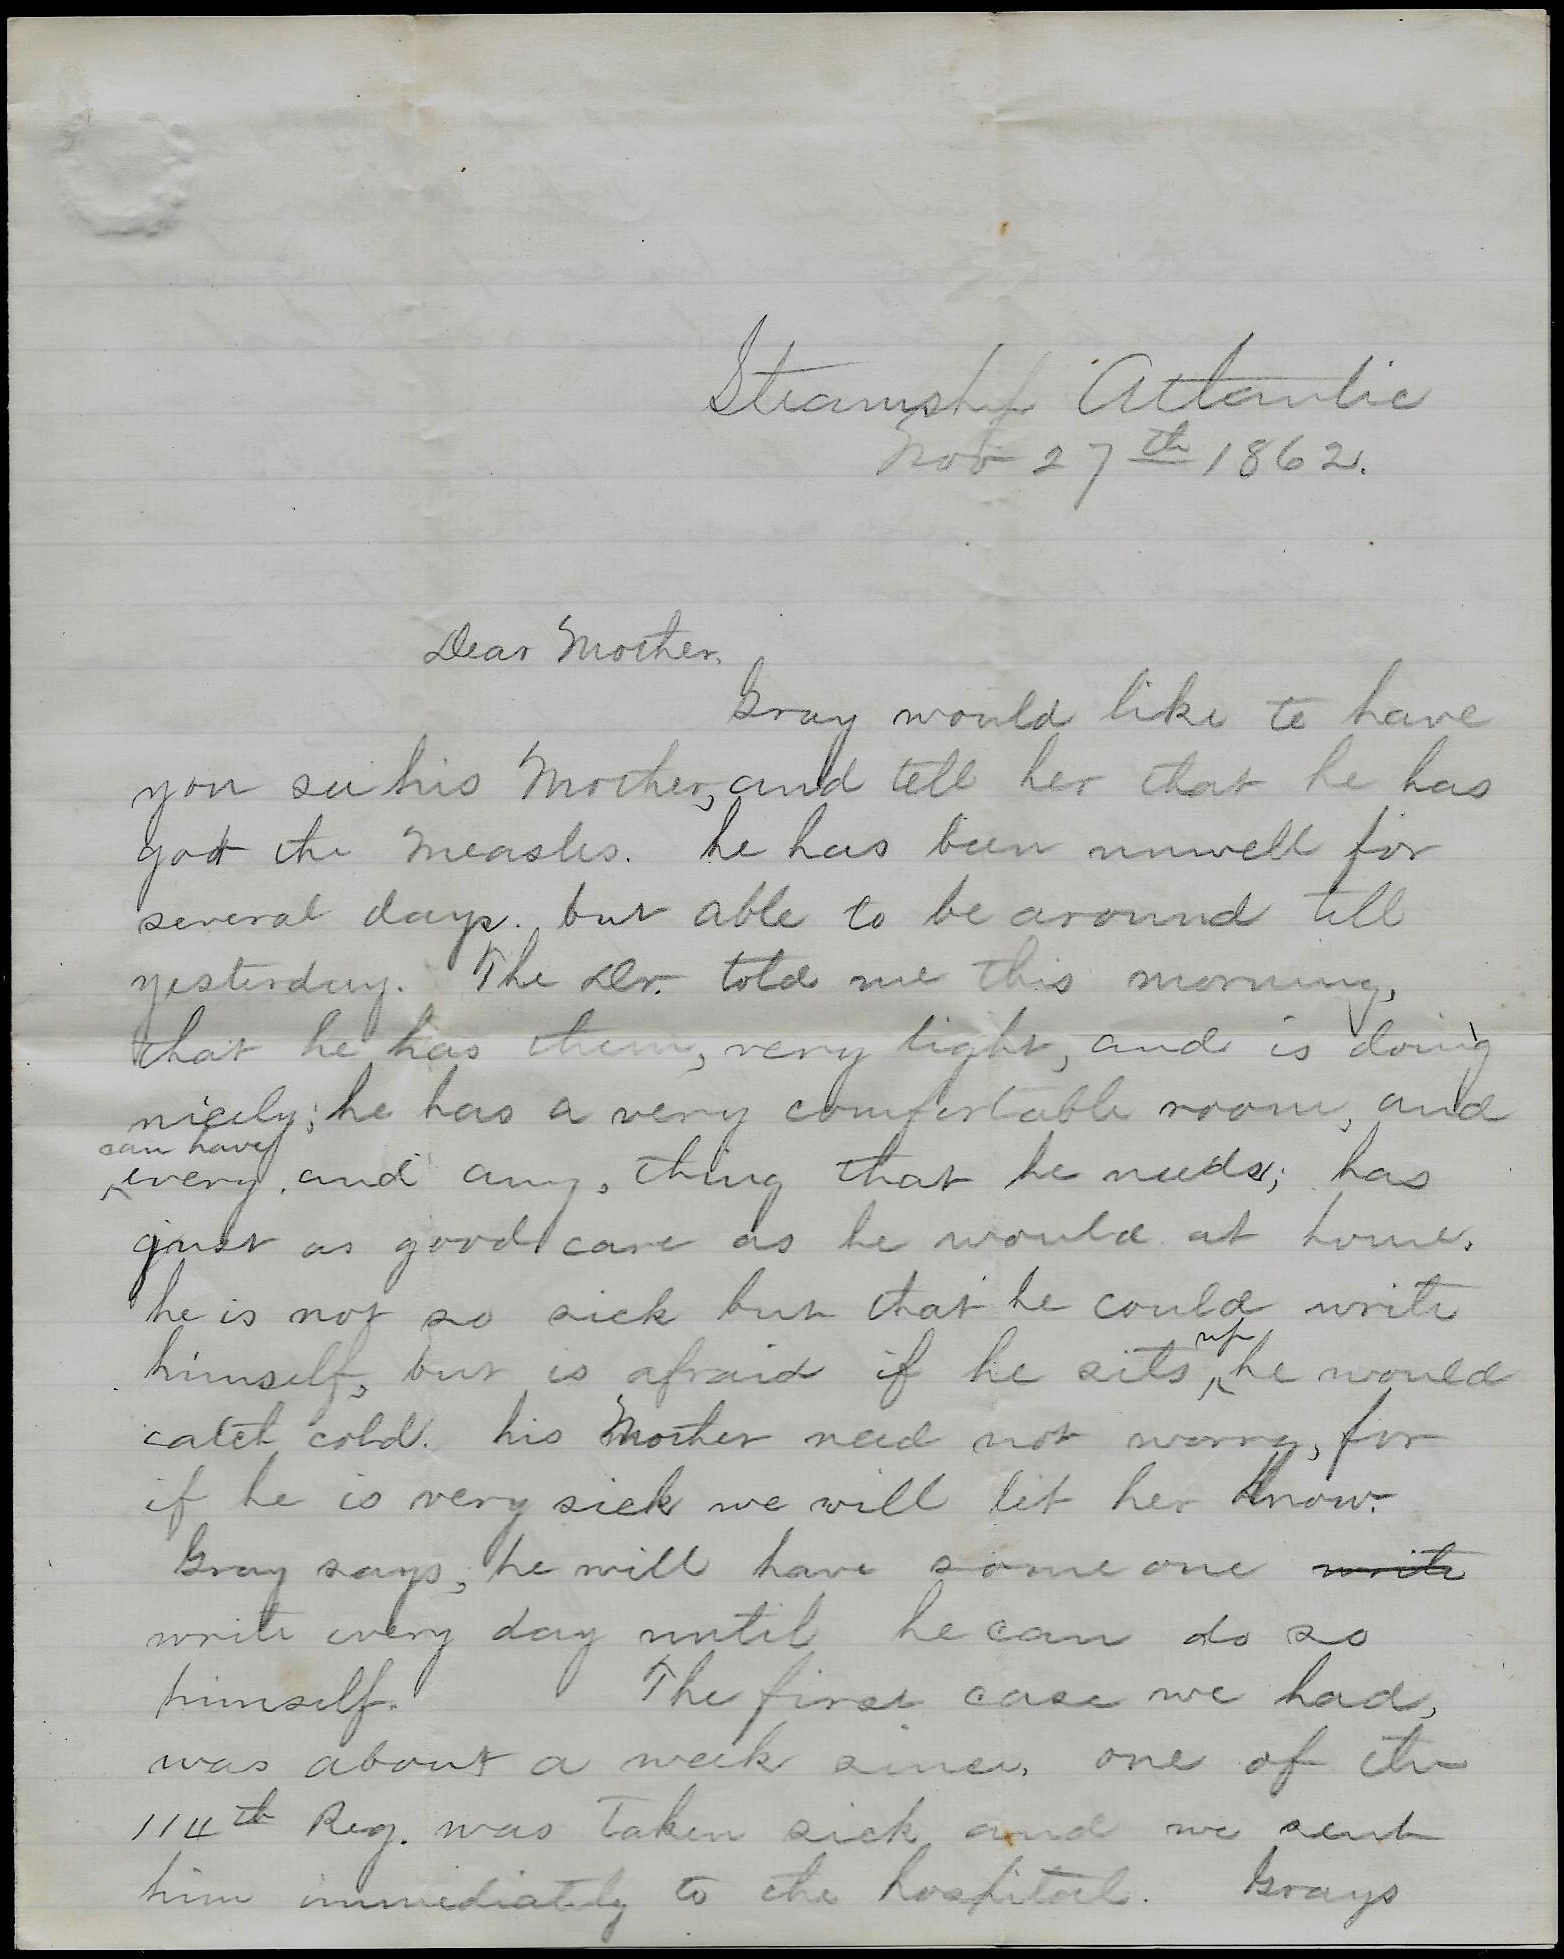 Steamship Atlantic
Nov 27th 1862.
Dear Mother.
Gray would like to have
you see his Mother, and tell her that he has
got the Measles. he has been unwell for
several days. but able to be around till
yesterday. The Dr. told me this morning,
that he has them, very light, and is doing
nicely; he has a very comfortable room, and
can have
every, and any, thing that he needs; has
just as good care as he would at home.
he is not so sick but that he could write
himself, but is afraid if he sits up he would
catch cold. his Mother need not worry, for
if he is very sick we will let her know.
Gray says, he will have some one write
write every day until he can do so
himself. The first case we had,
was about a week since. one of the
114th Reg. was taken sick and we sent
him immediately to the hospital. Grays